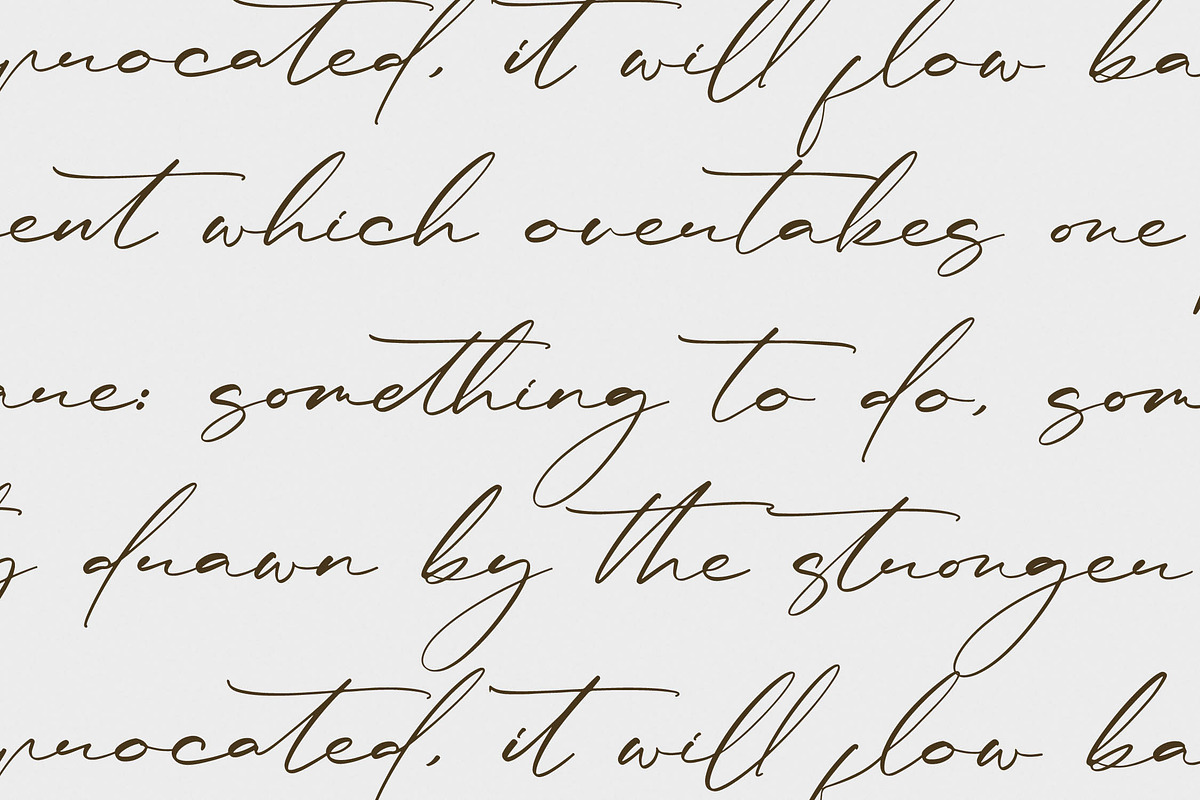 procated, it will flow ba
ent which overtakes one
rue: something to do, som
drawn by the stronger
procated, it will flow ba